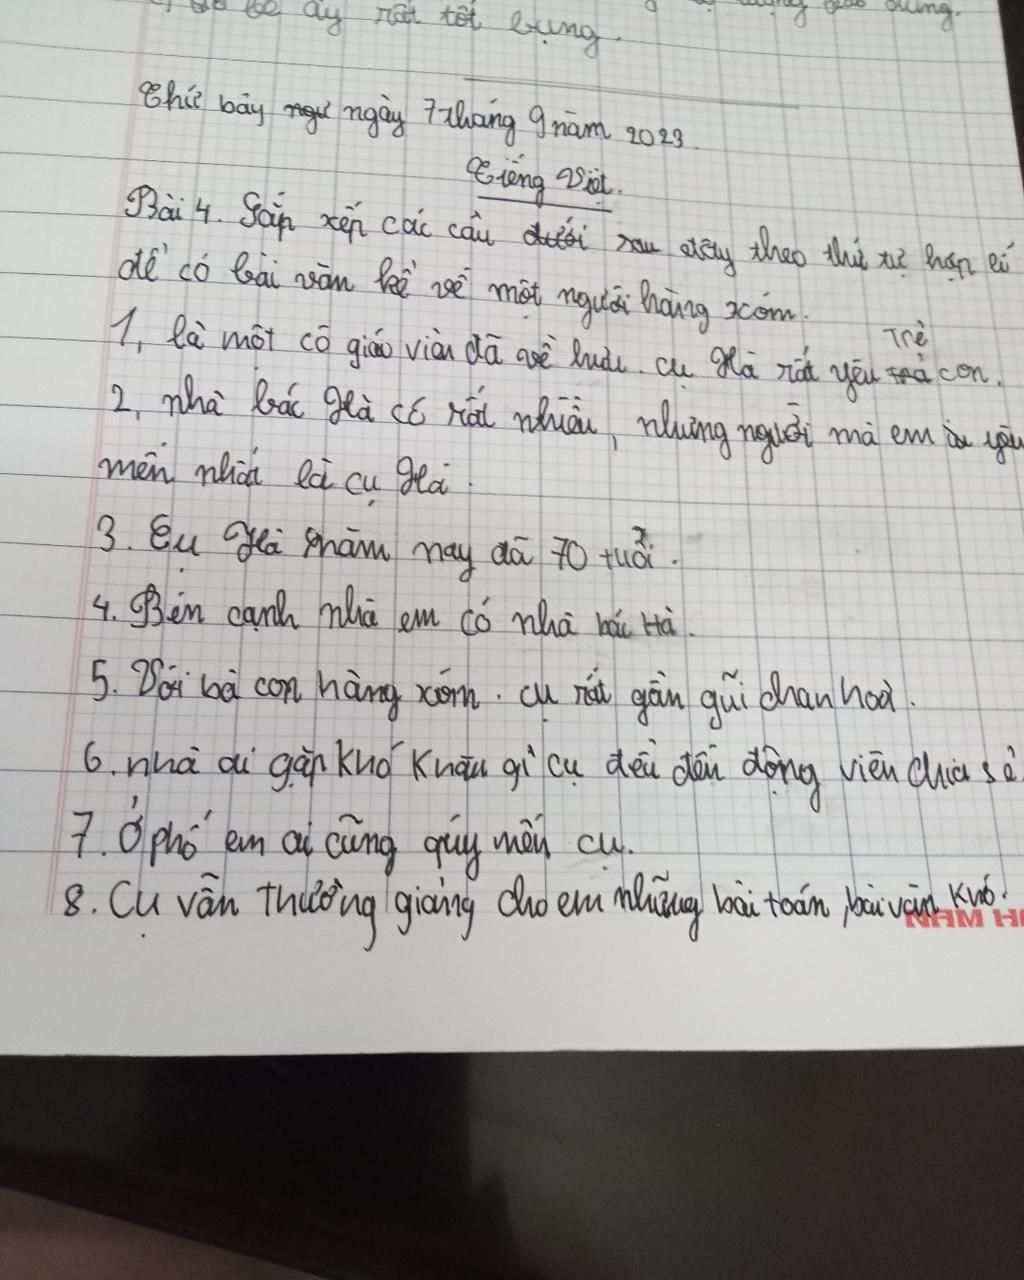 ấy rất tốt bụng.
Thứ bảy ngày 7 tháng 9 năm 2023
Tiếng Việt.
Bài 4. Sắp xếp các câu sau đây theo thứ tự hợp lí
để có bài văn kể về một người hàng xóm.
1, là một cô giáo viên đã về hưu. cụ Hà rất yêu trẻ con.
2, nhà bác Hà có rất nhiều, nhưng người mà em yêu
mến nhất là cụ Hà.
3. Cụ Hà năm nay đã 70 tuổi.
4. Bên cạnh nhà em có nhà bác Hà.
5. Với bà con hàng xóm. cụ rất gần gũi chan hoà.
6. nhà ai gặp khó khăn gì cụ đều đến động viên chia sẻ.
7. Ở phố em ai cũng qúy mến cụ.
8. Cụ vẫn thường giảng cho em những bài toán, bài văn khó.
NAM H